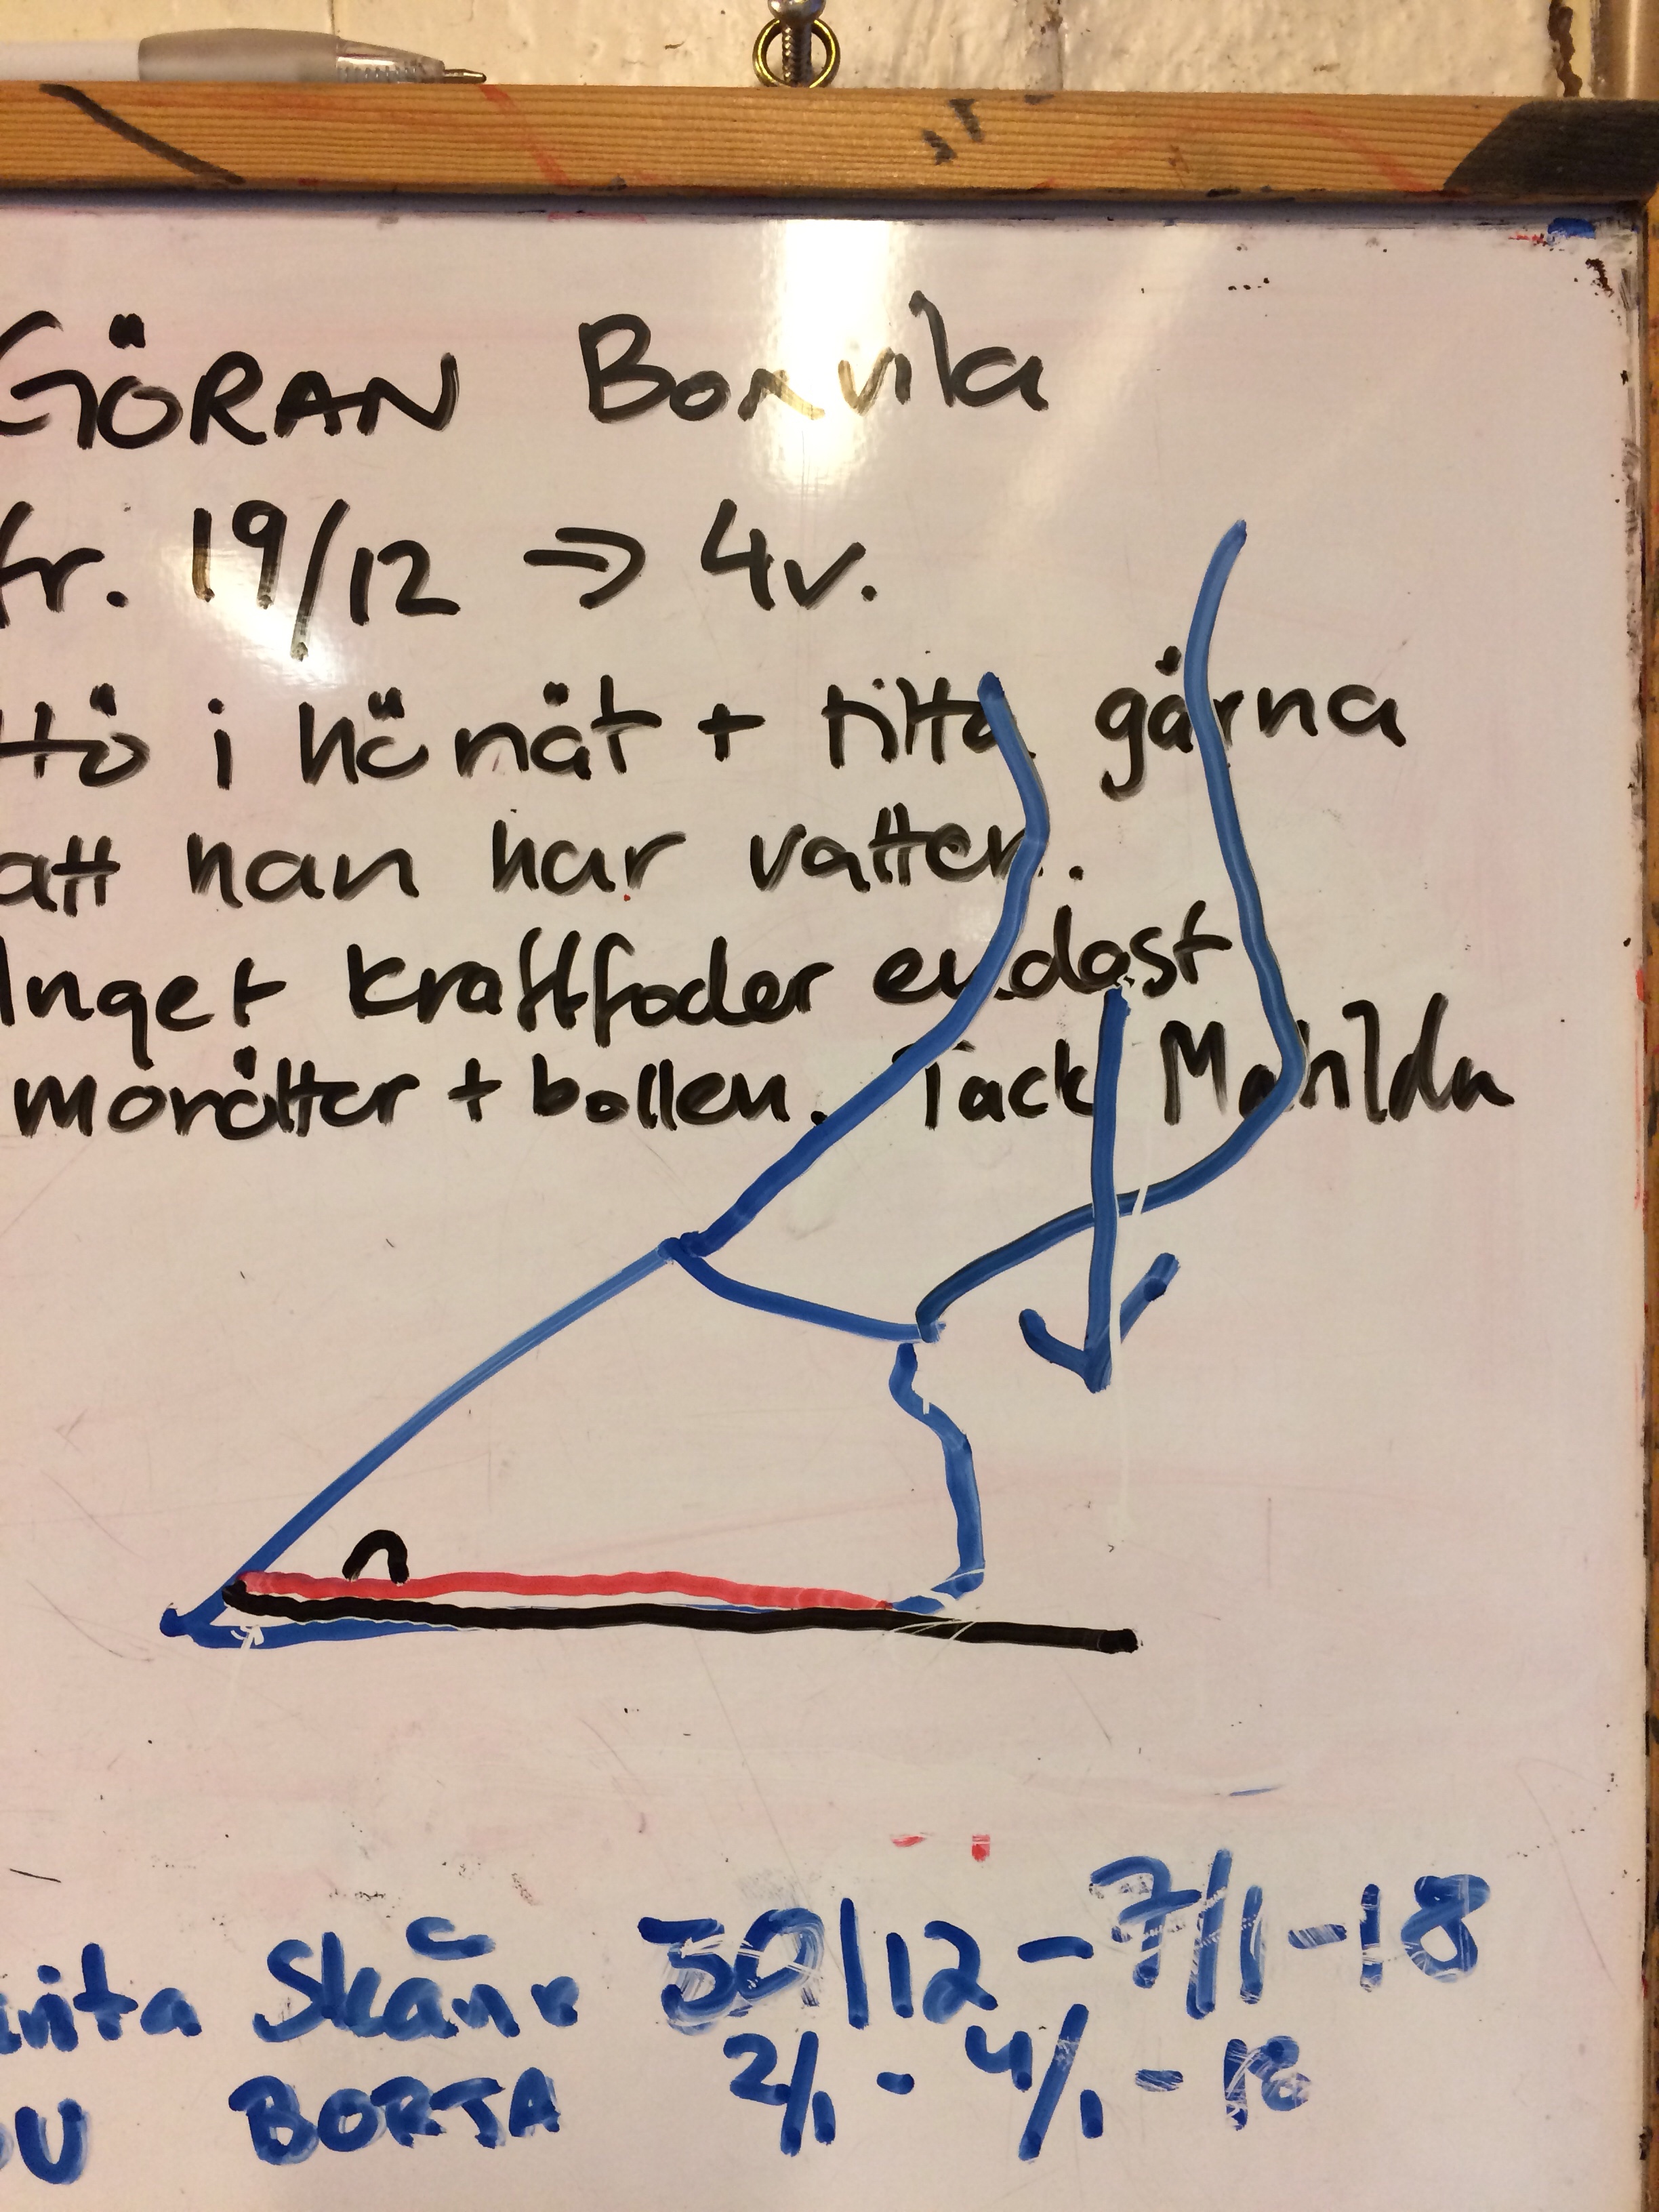 GÖRAN Boxvila
fr. 19/12 => 4v.
Hö i hönät + titta gärna
att han har vatten.
Inget kraftfoder endast
morötter + bollen. Tack Matilda
Skåne 30/12 - 7/1 - 18
BORTA 2/1 - 4/1 - 18